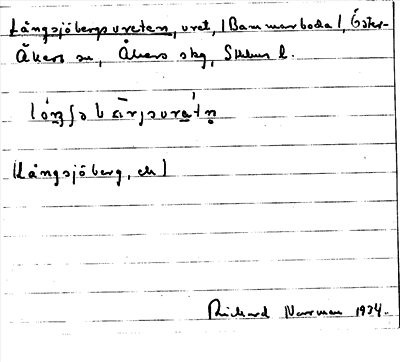 Långsjöbergsvreten, vret, (Bammarboda), Öster-
Åkers sn, Åkers skg, Sthlms l.
(Långsjöberg, ek)
Rickard Norrman 1934.